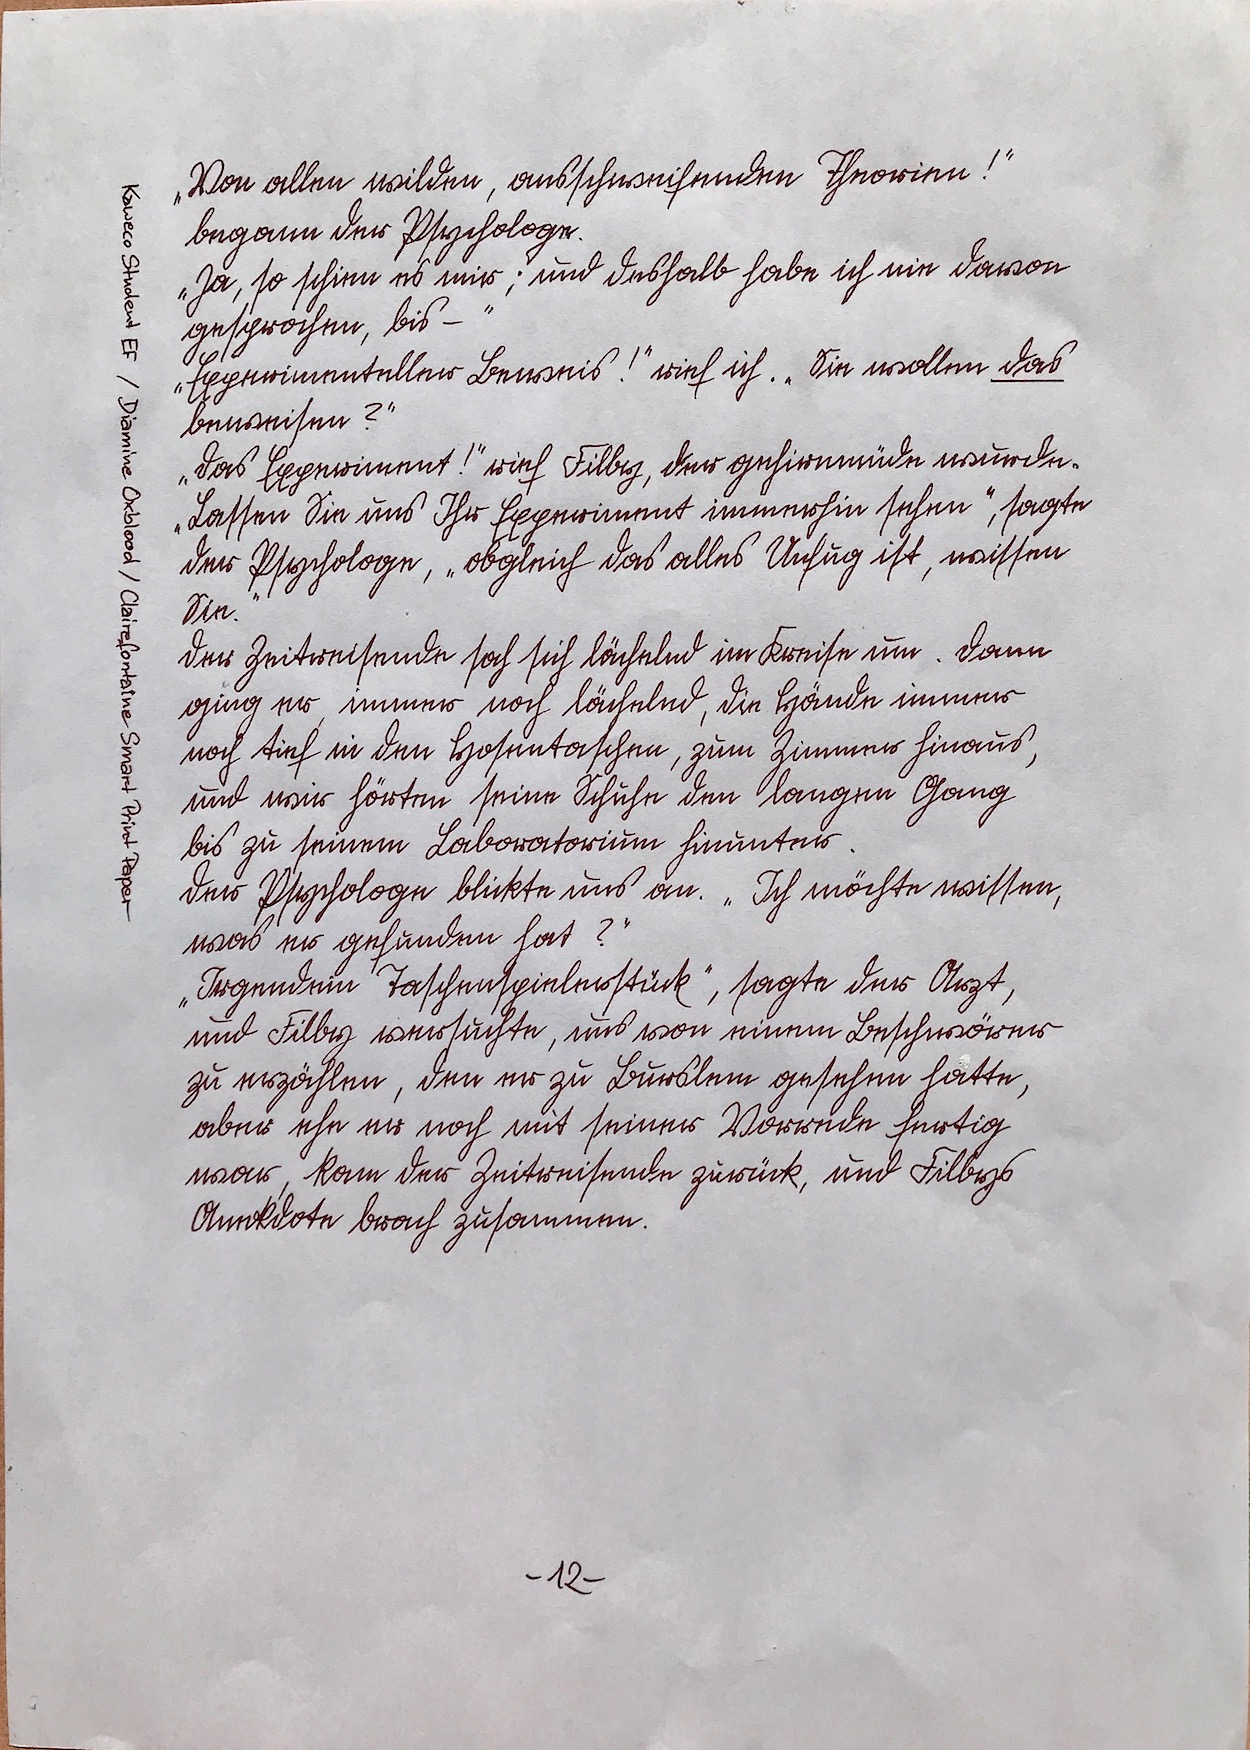 „Von allen wilden, ausschweifenden Theorien!"
begann der Psychologe.
„Ja, so schien es mir; und deshalb habe ich nie davon
gesprochen, bis – "
„Experimenteller Beweis!" rief ich. „Sie wollen das
beweisen?"
„Das Experiment!" rief Filby, der gehirnmüde wurde.
„Lassen Sie uns Ihr Experiment immerhin sehen", sagte
der Psychologe, „obgleich das alles Unfug ist, wissen
Sie."
Der Zeitreisende sah sich lächelnd im Kreise um. Dann
ging er, immer noch lächelnd, die Hände immer
noch tief in den Hosentaschen, zum Zimmer hinaus,
und wir hörten seine Schuhe den langen Gang
bis zu seinem Laboratorium hinunter.
Der Psychologe blickte uns an. „Ich möchte wissen,
was er gefunden hat?"
„Irgendein Taschenspielerstück", sagte der Arzt,
und Filby versuchte, uns von einem Beschwörer
zu erzählen, den er zu Burslem gesehen hatte,
aber ehe er noch mit seiner Vorrede fertig
war, kam der Zeitreisende zurück, und Filbys
Anekdote brach zusammen.
-12-
Kaweco Student EF / Diamine Oxblood / Clairefontaine Smart Print Paper